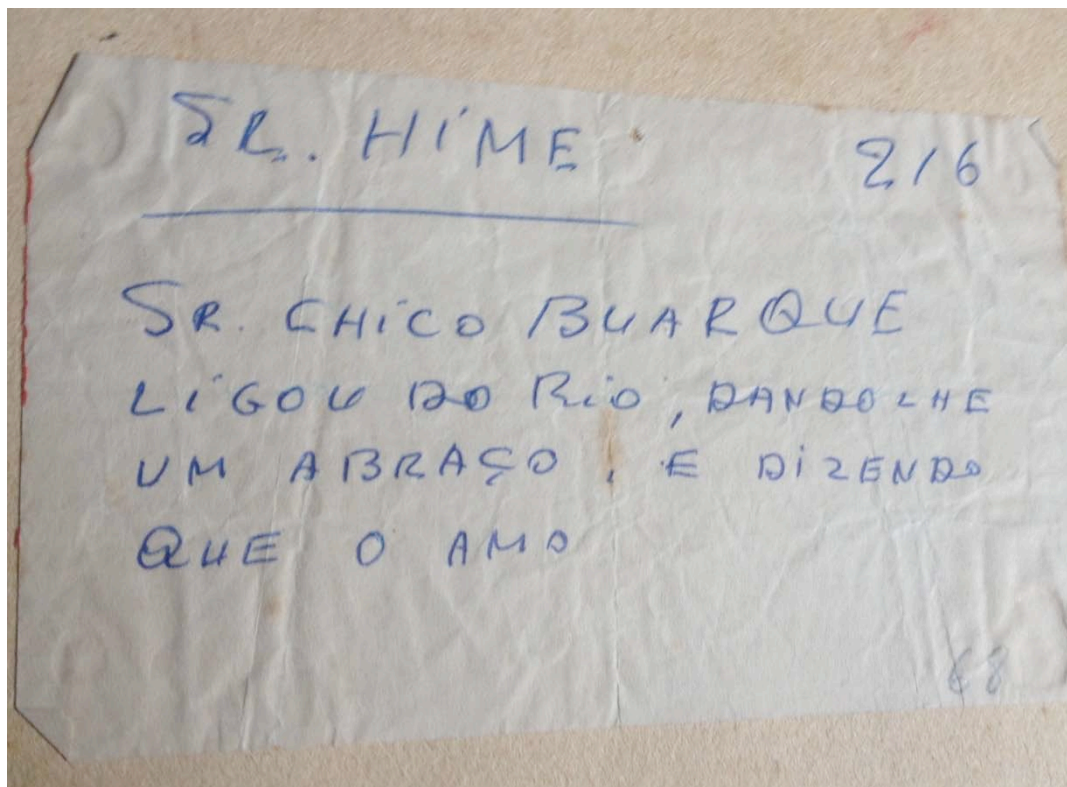 SR. HIME 216
SR. CHICO BUARQUE
LIGOU DO RIO, DANDOLHE
UM ABRAÇO, E DIZENDO
QUE O AMO
68